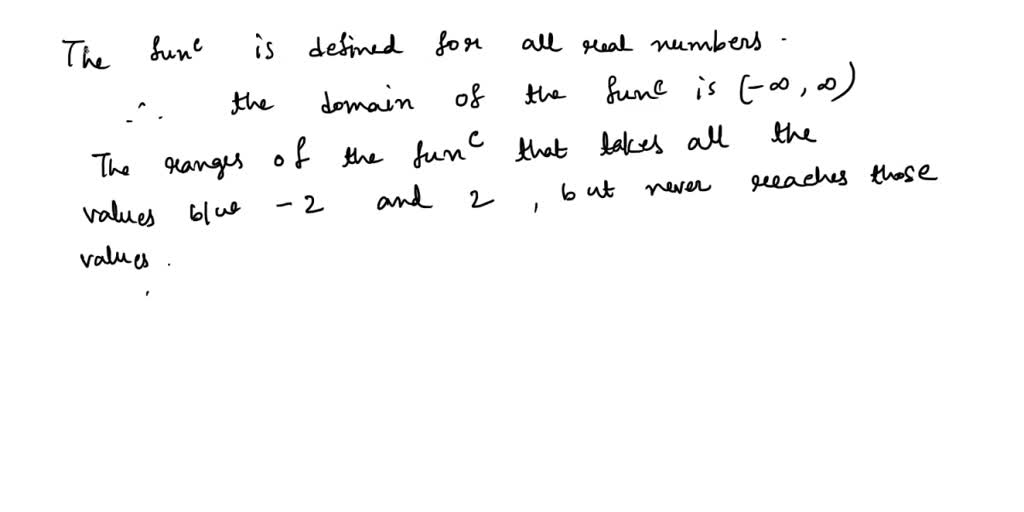 The func is defined for all real numbers.
∴ the domain of the func is (-∞, ∞)
The ranges of the func that takes all the
values b/w -2 and 2, but never reaches those
values.